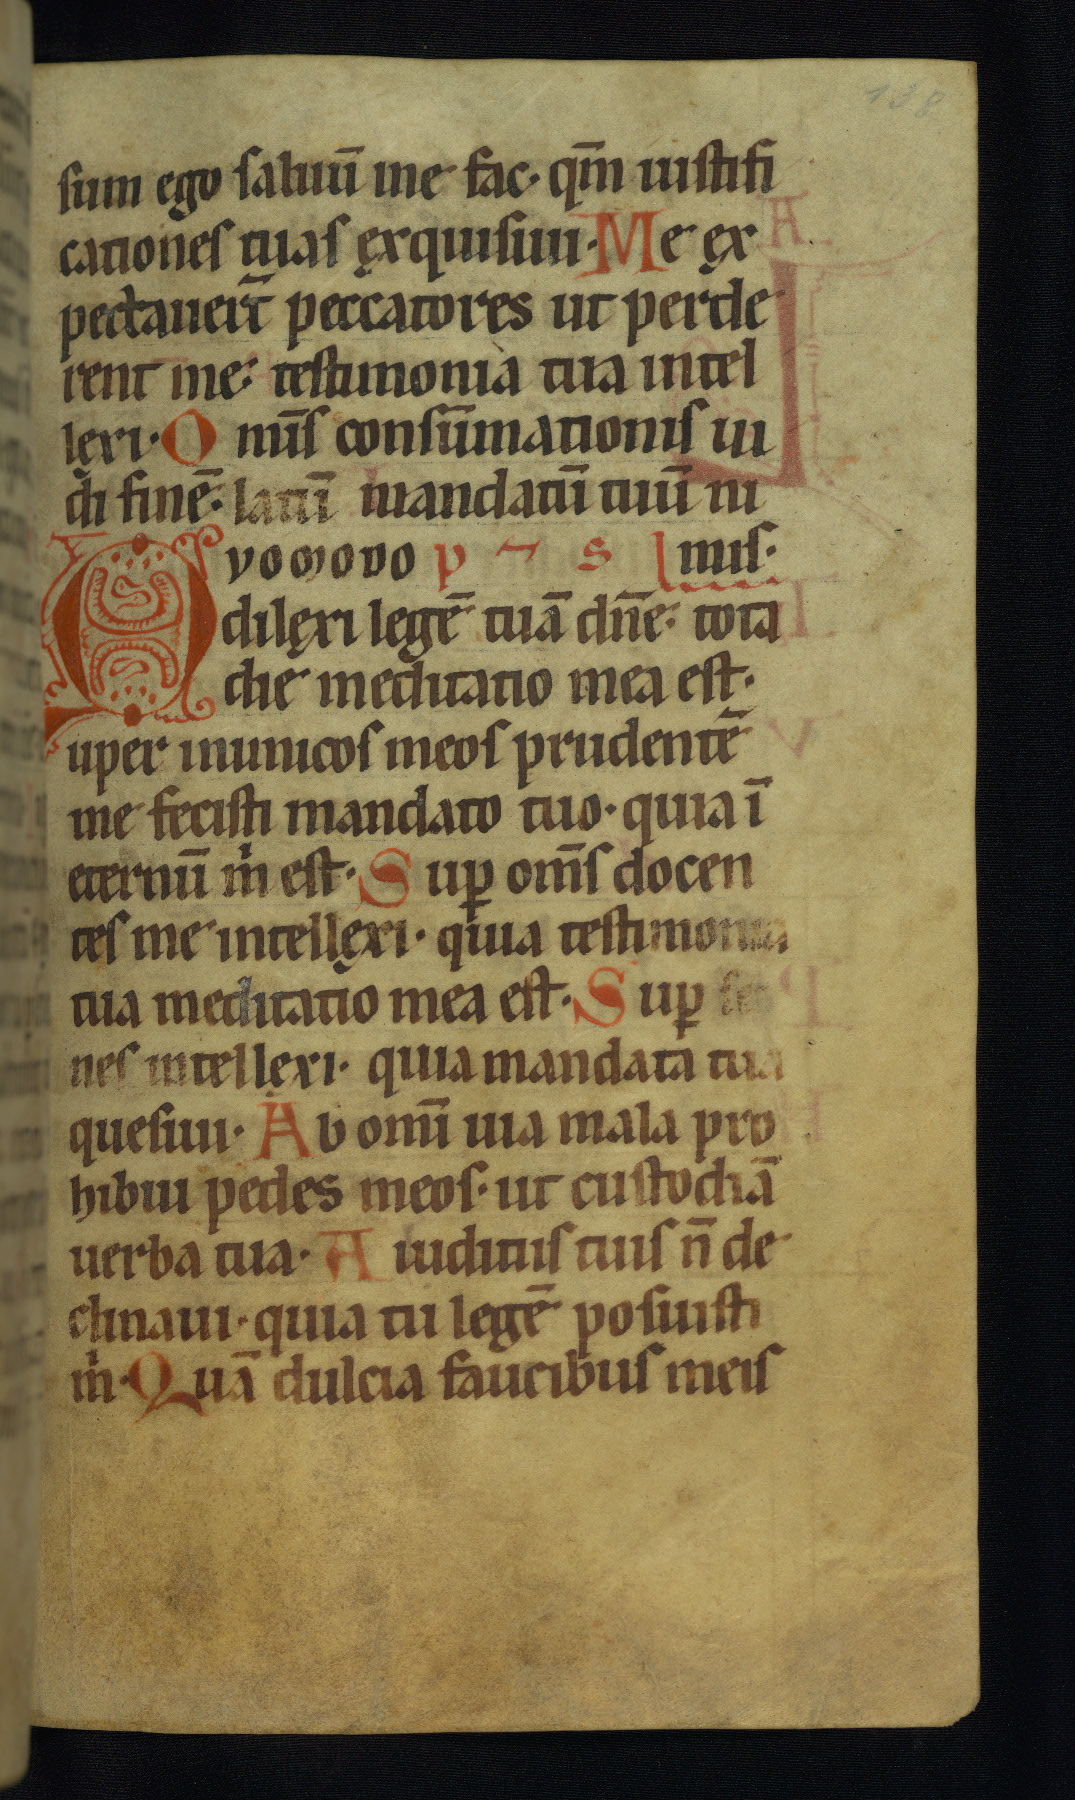 138
sum ego saluū me fac· qm̄ iustifi
cationes tuas exquisiui· Me ex
pectauer̄t peccatores ut perde
rent me: testimonia tua intel
lexi· O mīs consūmationis ui
di finē: latū mandatū tuū ni
Qvomodo p s l mis·
dilexi legē tuā dn̄e: tota
die meditatio mea est·
uper inimicos meos prudentē
me fecisti mandato tuo· quia ī
eternū m̍ est· Sup om̄s docen
tes me intellexi· quia testimonia
tua meditatio mea est· Sup se
nes intellexi· quia mandata tua
quesiui· Ab omī uia mala pro
hibui pedes meos· ut custodiā
uerba tua· A iuditiis tuis n̄ de
clinaui· quia tu legē posuisti
m̍· Quā dulcia faucibus meis